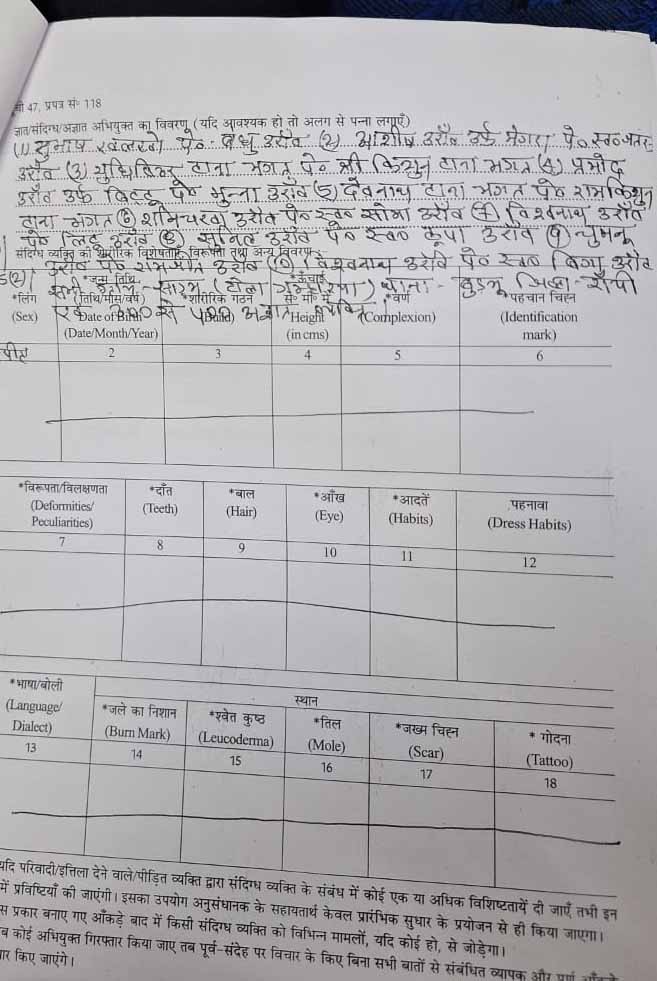 सी 47, प्रपत्र सं॰ 118
ज्ञात/संदिग्ध/अज्ञात अभियुक्त का विवरण (यदि आवश्यक हो तो अलग से पन्ना लगाएँ)
(1) सुभाष खलखो पे० बुधु उराँव (2) आशीष उराँव उर्फ मंगरा पे० स्व०
उराँव (3) युधिष्ठिर टाना भगत पे० श्री किशुन टाना भगत (4) प्रमोद
उराँव उर्फ बिट्टू पे० मुन्ना उराँव (5) देवनाथ टाना भगत पे० रामकिशुन
टाना भगत (6) शनिचरवा उराँव पे० स्व० सोमा उराँव (7) विश्वनाथ उराँव
पे० उराँव (8) सुनिल उराँव पे० स्व० कृपा उराँव (9)
संदिग्ध व्यक्ति की शारीरिक विशेषताएँ, विरूपता तथा अन्य विवरण
उराँव पे० रामजीत उराँव (10) विश्वनाथ उराँव पे० स्व० उराँव
सभी ग्राम:- (टोला) थाना - बुड़मू जिला - राँची
एवं 300 से 400 अज्ञात व्यक्ति
*लिंग
(Sex)
*जन्म तिथि
(तिथि/मास/वर्ष)
Date of Birth
(Date/Month/Year)
*शारीरिक गठन
(Build)
*ऊँचाई
सें॰ मी॰ में
Height
(in cms)
*वर्ण
(Complexion)
*पहचान चिह्न
(Identification
mark)
2 3 4 5 6
*विरूपता/विलक्षणता
(Deformities/
Peculiarities)
*दाँत
(Teeth)
*बाल
(Hair)
*आँख
(Eye)
*आदतें
(Habits)
पहनावा
(Dress Habits)
7 8 9 10 11 12
*भाषा/बोली
(Language/
Dialect)
स्थान
*जले का निशान
(Burn Mark)
*श्वेत कुष्ठ
(Leucoderma)
*तिल
(Mole)
*जख्म चिह्न
(Scar)
* गोदना
(Tattoo)
13 14 15 16 17 18
यदि परिवादी/इत्तिला देने वाले/पीड़ित व्यक्ति द्वारा संदिग्ध व्यक्ति के संबंध में कोई एक या अधिक विशिष्टतायें दी जाएँ तभी इन
में प्रविष्टियाँ की जाएंगी। इसका उपयोग अनुसंधानक के सहायतार्थ केवल प्रारंभिक सुधार के प्रयोजन से ही किया जाएगा।
स प्रकार बनाए गए आँकड़े बाद में किसी संदिग्ध व्यक्ति को विभिन्न मामलों, यदि कोई हो, से जोड़ेगा।
ब कोई अभियुक्त गिरफ्तार किया जाए तब पूर्व-संदेह पर विचार के किए बिना सभी बातों से संबंधित व्यापक और पूर्ण
ार किए जाएंगे।